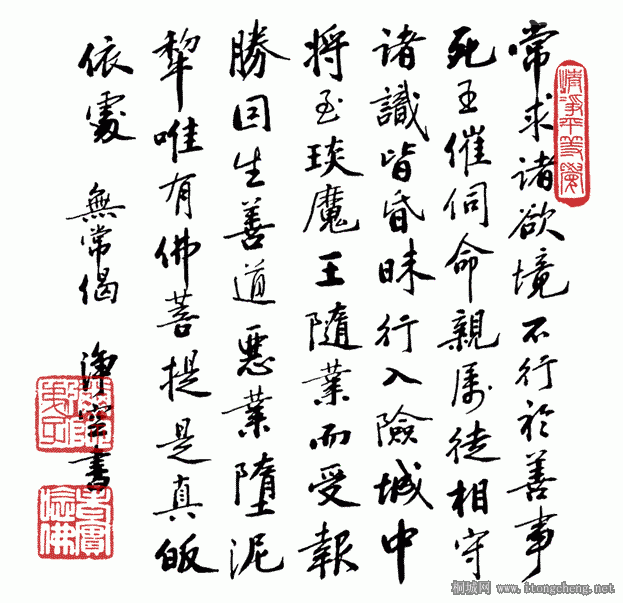 清淨平等覺
常求諸欲境不行於善事
死王催伺命親属徒相守
諸識皆昏昧行入險城中
將至琰魔王隨業而受報
勝因生善道惡業墮泥
犂唯有佛菩提是真皈
依處 無常偈 淨空書
老實念佛
桐城网 www.1tongcheng.net